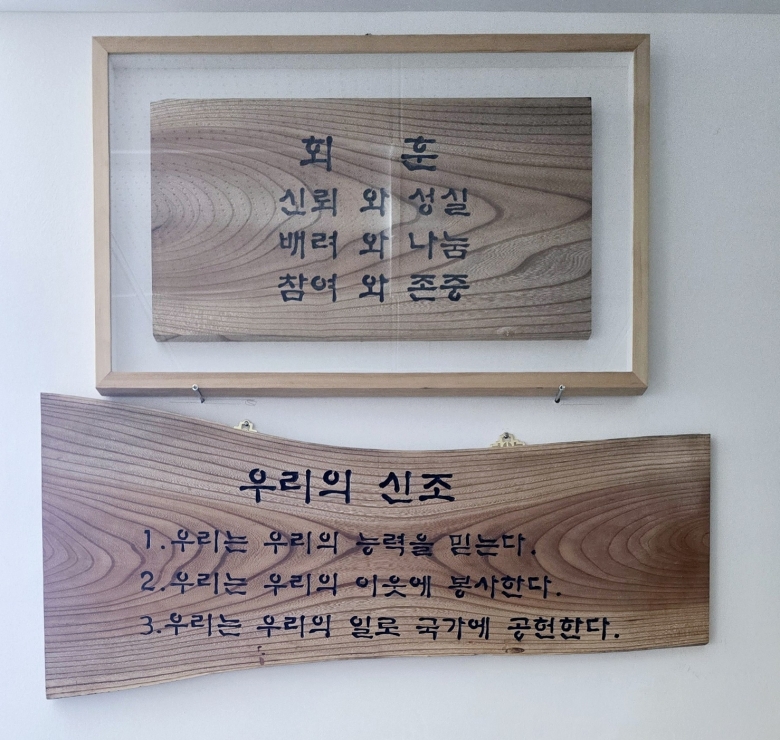 회 훈
신뢰 와 성실
배려 와 나눔
참여 와 존중
우리의 신조
1.우리는 우리의 능력을 믿는다.
2.우리는 우리의 이웃에 봉사한다.
3.우리는 우리의 일로 국가에 공헌한다.